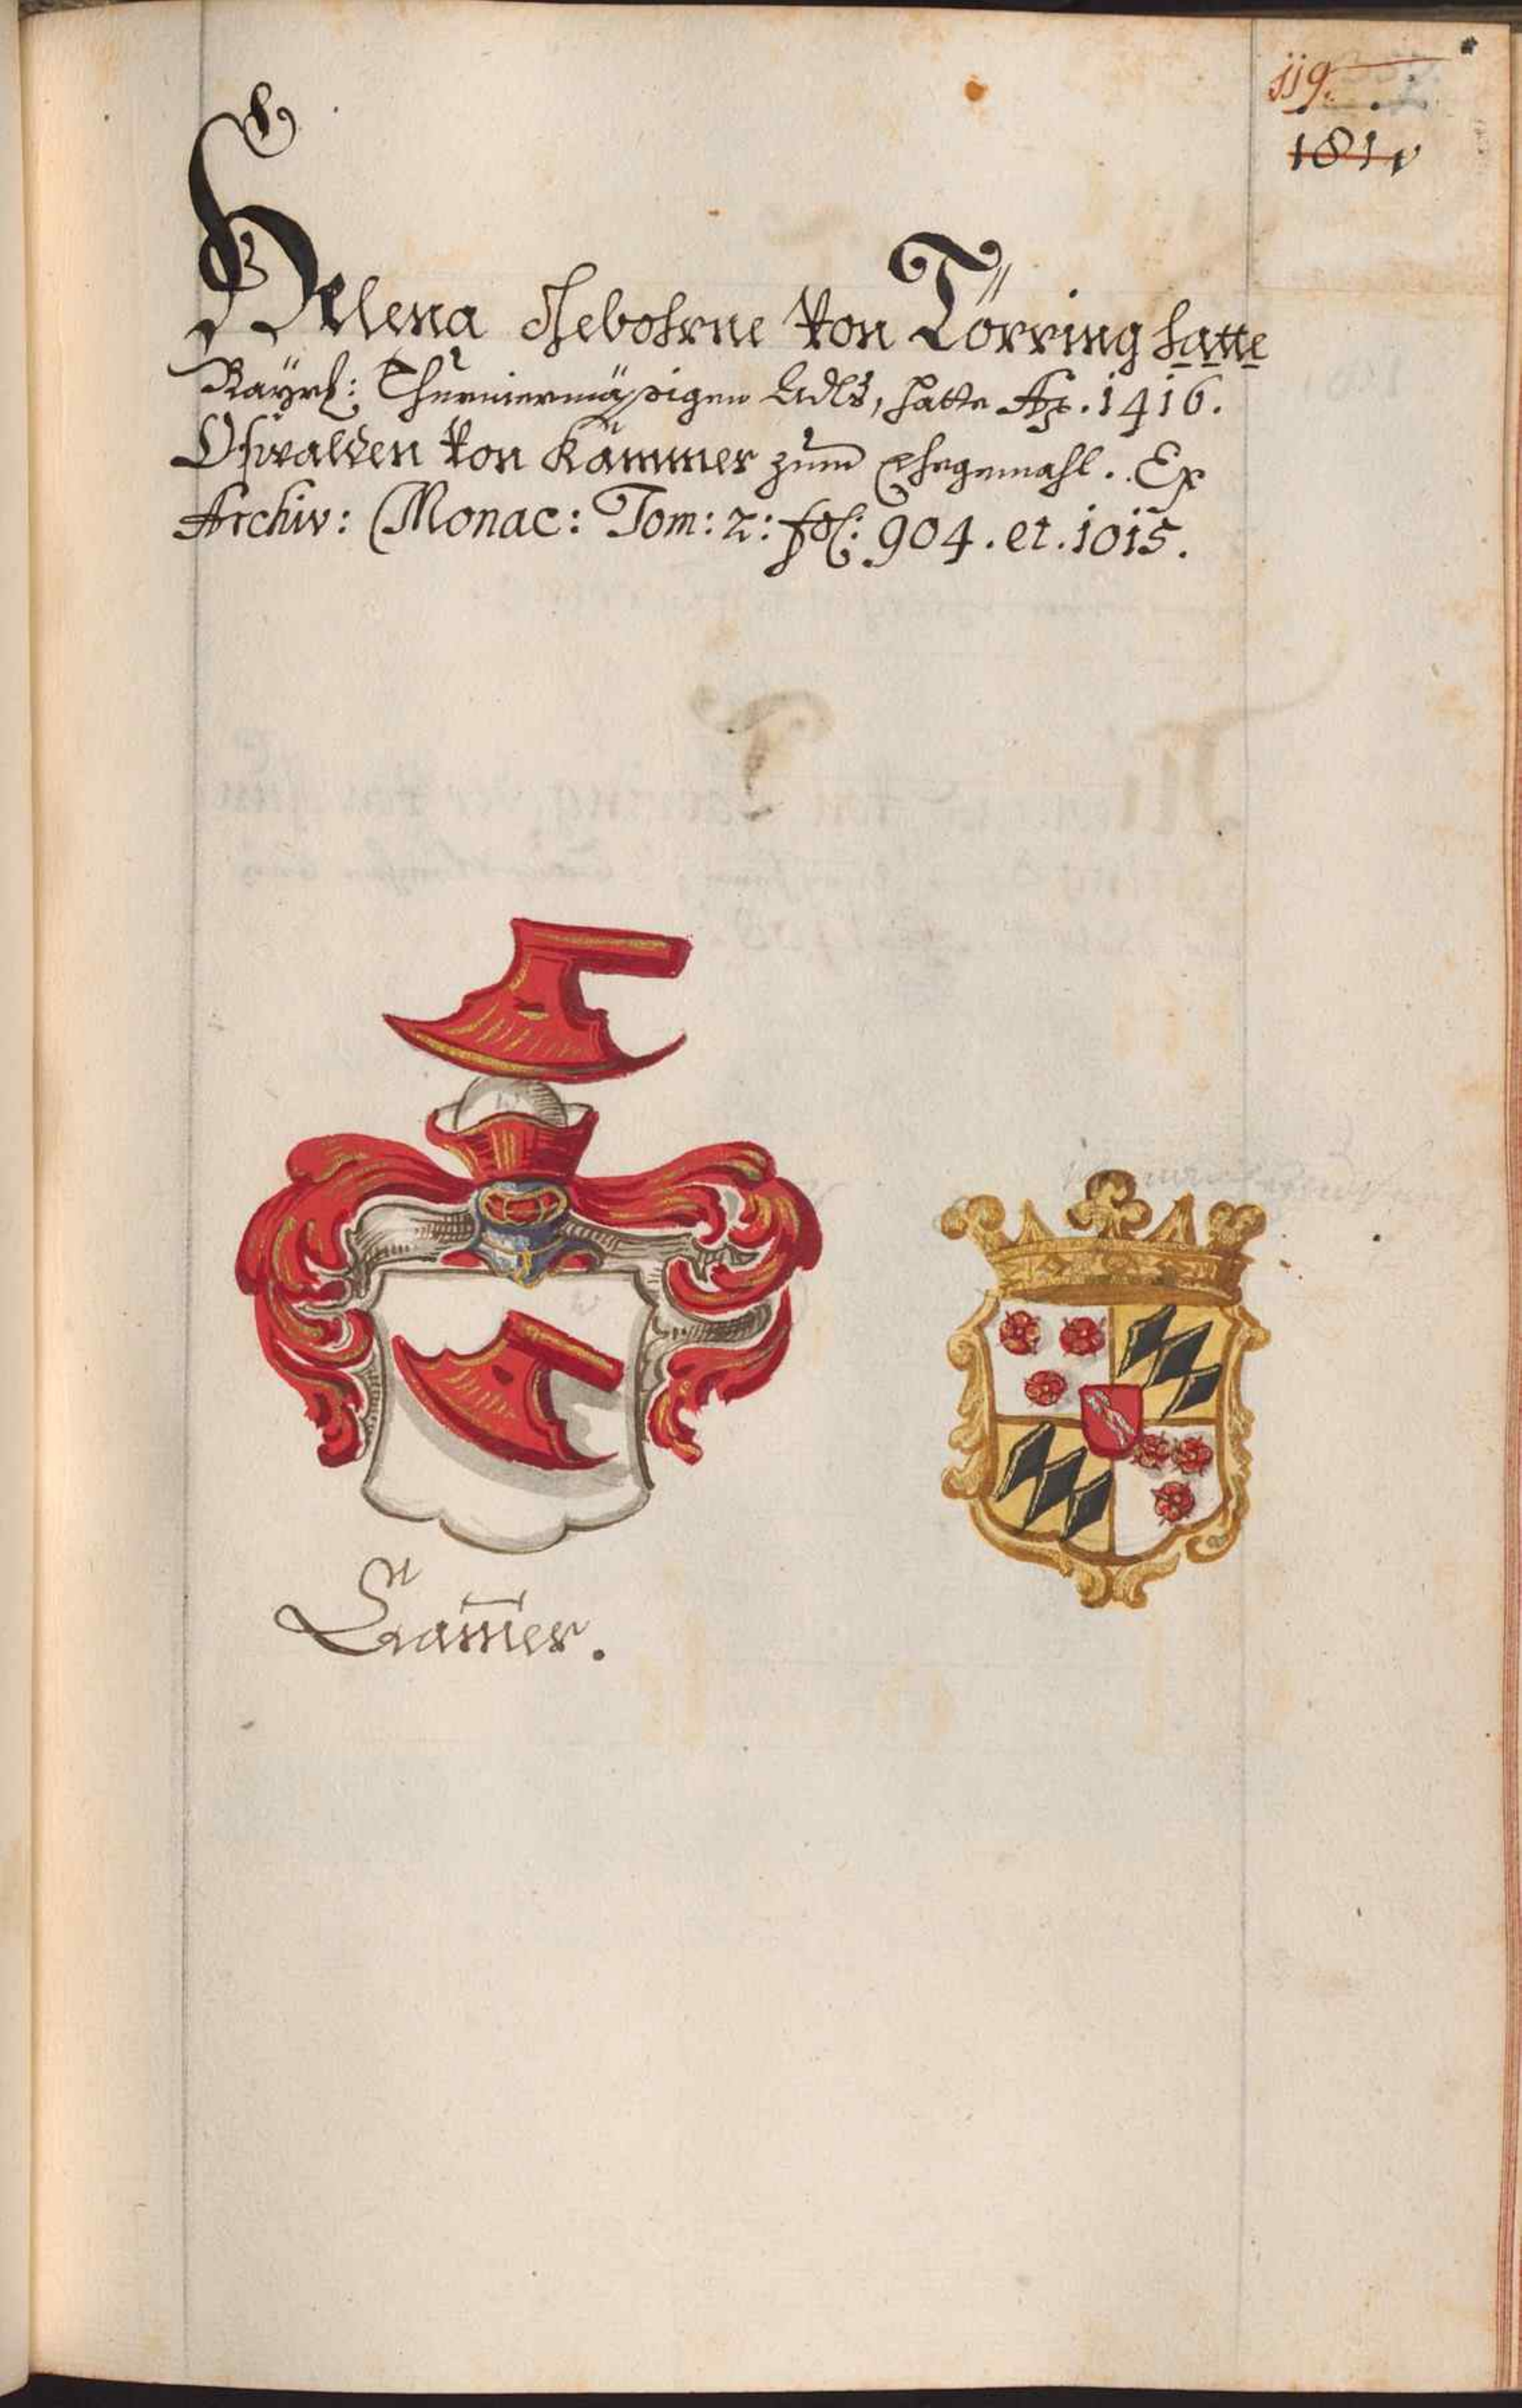 119.
181
Helena Gebohrne Von Törring hatte
Bayrl: Thurniermäßigen Adls, hatte Ao. 1416.
Oswalden Von Kammer zum Ehegemahl. Ex
Archiv: Monac: Tom: 2: fol: 904. et. 1015.
Camer.